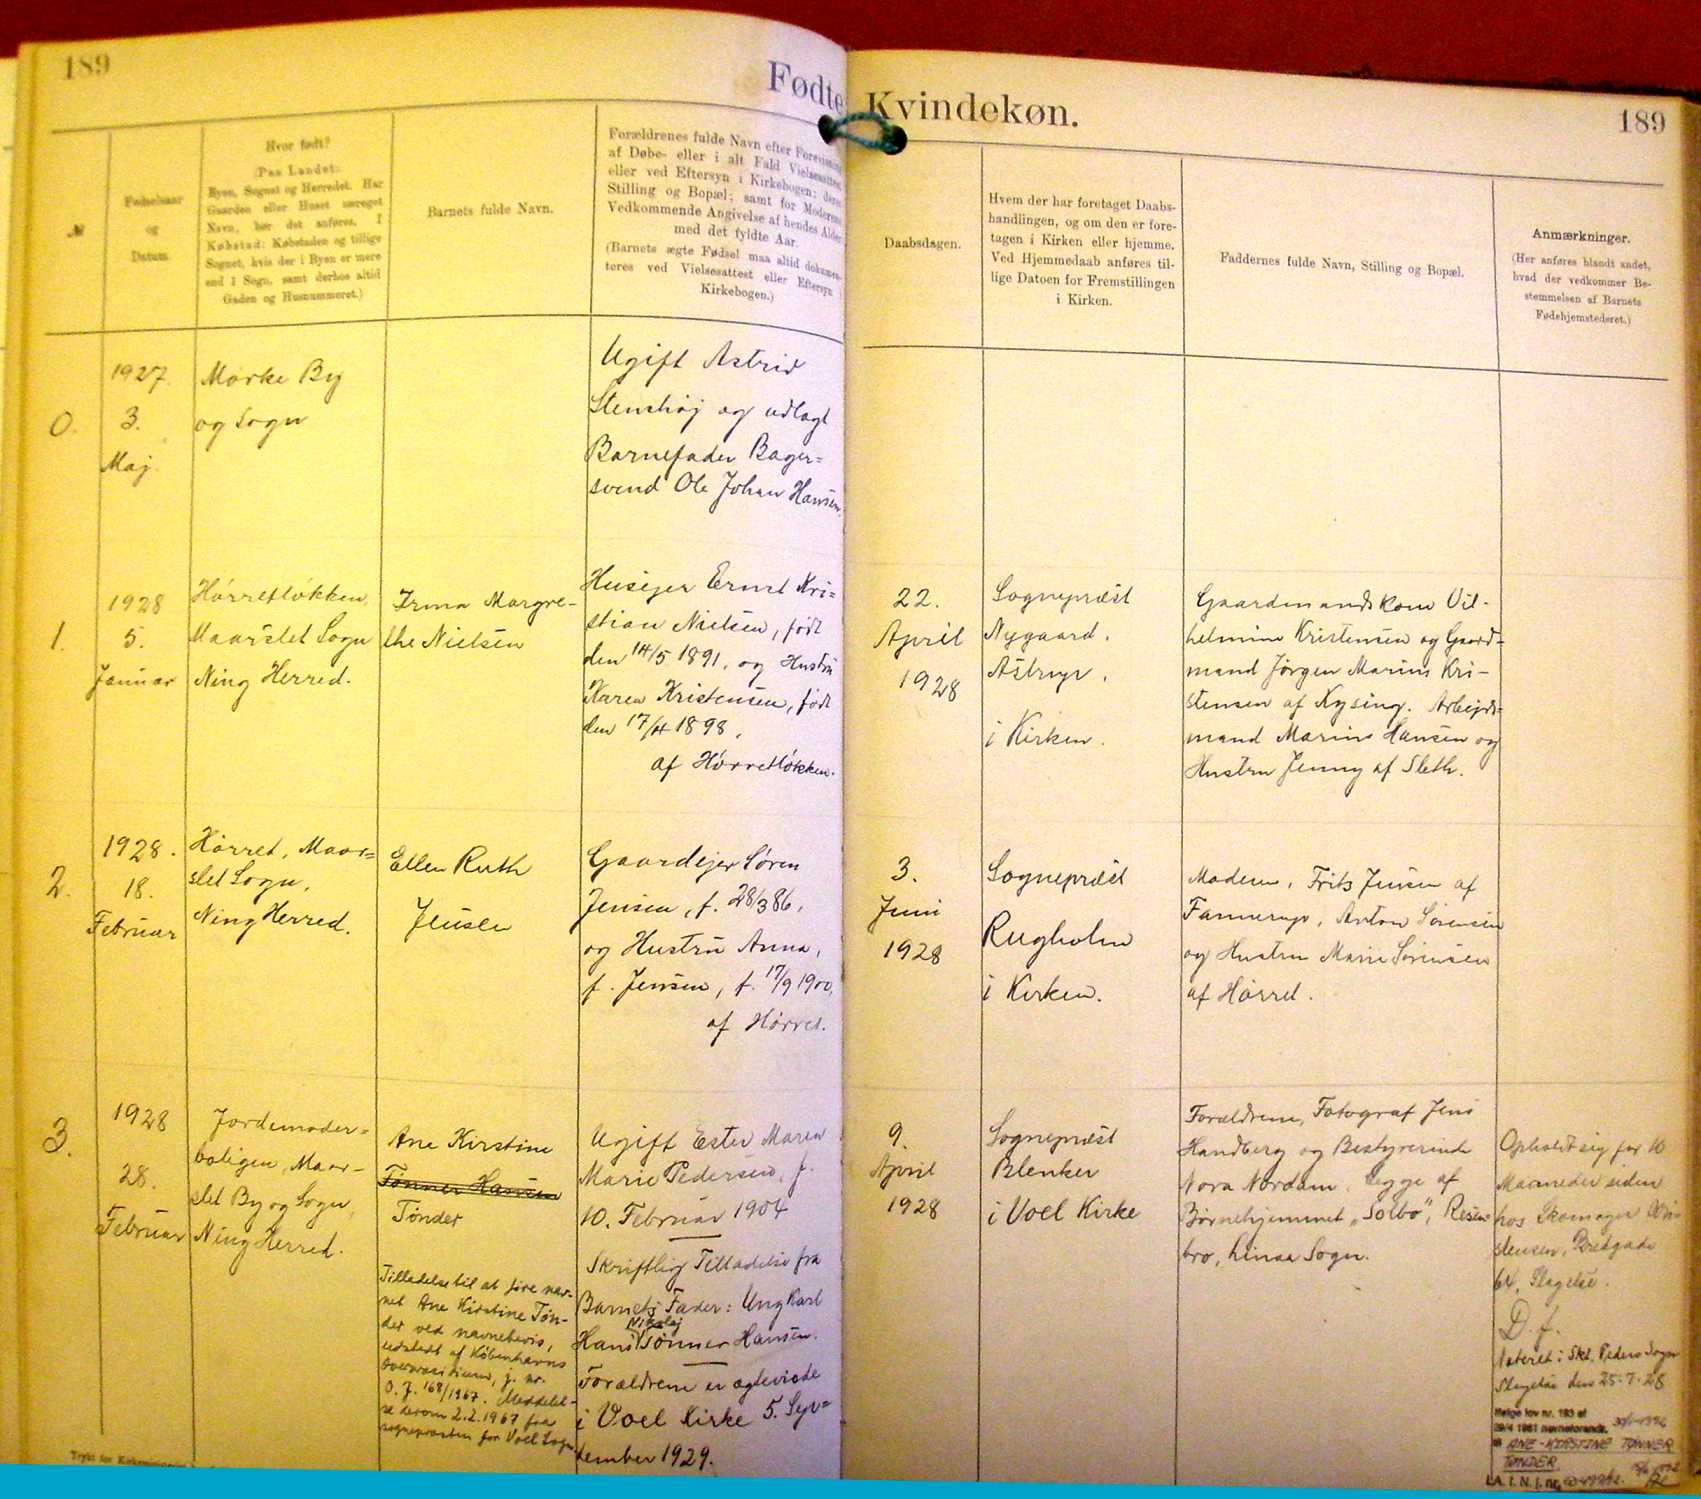 189
Fødte
Kvindekøn.
189
№
Fødselsaar
og
Datum.
Hvor født?
(Paa Landet:
Byen, Sognet og Herredet. Har
Gaarden eller Huset særeget
Navn, bør det anføres. I
Købstad: Købstaden og tillige
Sognet, hvis der i Byen er mere
end 1 Sogn, samt derhos altid
Gaden og Husnummeret.)
Barnets fulde Navn.
Forældrenes fulde Navn efter Forevisning
af Døbe- eller i alt Fald Vielsesattest
eller ved Eftersyn i Kirkebogen; deres
Stilling og Bopæl; samt for Moderens
Vedkommende Angivelse af hendes Alder
med det fyldte Aar.
(Barnets ægte Fødsel maa altid dokumen-
teres ved Vielsesattest eller Eftersyn i
Kirkebogen.)
Daabsdagen.
Hvem der har foretaget Daabs-
handlingen, og om den er fore-
tagen i Kirken eller hjemme.
Ved Hjemmedaab anføres til-
lige Datoen for Fremstillingen
i Kirken.
Faddernes fulde Navn, Stilling og Bopæl.
Anmærkninger.
(Her anføres blandt andet,
hvad der vedkommer Be-
stemmelsen af Barnets
Fødehjemstederet.)
0.
1927.
3.
Maj.
Mørke By
og Sogn
Ugift Astrid
Stenshøj og udlagt
Barnefader Bager=
svend Ole Johan Hansen.
1.
1928
5.
Januar
Hørretløkken,
Maarslet Sogn
Ning Herred.
Irma Margre-
the Nielsen
Husejer Ernst Kri=
stian Nielsen, født
den 14/5 1891, og Hustru
Karen Kristensen, født
den 17/4 1898,
af Hørretløkken.
22.
April
1928
Sognepræst
Nygaard,
Astrup,
i Kirken.
Gaardmandskone Vil-
helmine Kristensen og Gaard=
mand Jørgen Marius Kri-
stensen af Kysing. Arbejds=
mand Marius Hansen og
Hustru Jenny af Sleth.
2.
1928.
18.
Februar
Hørret, Maar=
slet Sogn,
Ning Herred.
Ellen Ruth
Jensen
Gaardejer Søren
Jensen, f. 28/3 86,
og Hustru Anna,
f. Jensen, f. 17/9 1900,
af Hørret.
3.
Juni
1928
Sognepræst
Rugholm
i Kirken.
Moderen, Frits Jensen af
Fannerup, Anton Sørensen
og Hustru Marie Sørensen
af Hørret.
3.
1928
28.
Februar
Jordemoder=
boligen, Maar-
slet By og Sogn,
Ning Herred.
Ane Kirstine
Tønner Hansen
Tønder
Tilladelse til at føre nav-
net Ane Kirstine Tøn-
der ved navnebevis,
udstedt af Københavns
Overpræsidium, j. nr.
O. J. 168/1967. Meddelel-
se derom 2.2.1967 fra
sognepræsten for Voel Sogn.
Ugift Ester Maren
Marie Pedersen, f.
10. Februar 1904
Skriftlig Tilladelse fra
Barnets Fader: Ungkarl
Nikolaj
Hans Tønner Hansen.
Forældrene er ægteviede
i Voel Kirke 5. Sep=
tember 1929.
9.
April
1928
Sognepræst
Blenker
i Voel Kirke
Forældrene, Fotograf Jens
Handberg og Bestyrerinde
Nora Nordam, begge af
Børnehjemmet „Solbo“, Resen=
bro, Linaa Sogn.
Opholdt sig for 10
Maaneder siden
hos Skomager Chri-
stensen, Bredgade
64, Slagelse.
D. f.
Noteret i Skt. Peders Sogn
Slagelse den 25-7-28
Ifølge lov nr. 193 af
29/4 1961 navneforandr.
til ANE-KIRSTINE TØNNER
TØNDER
LA. f. N. j. nr.